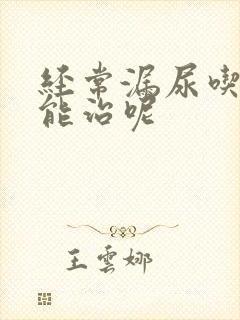 经常漏尿喫
能治呢
王雲娜